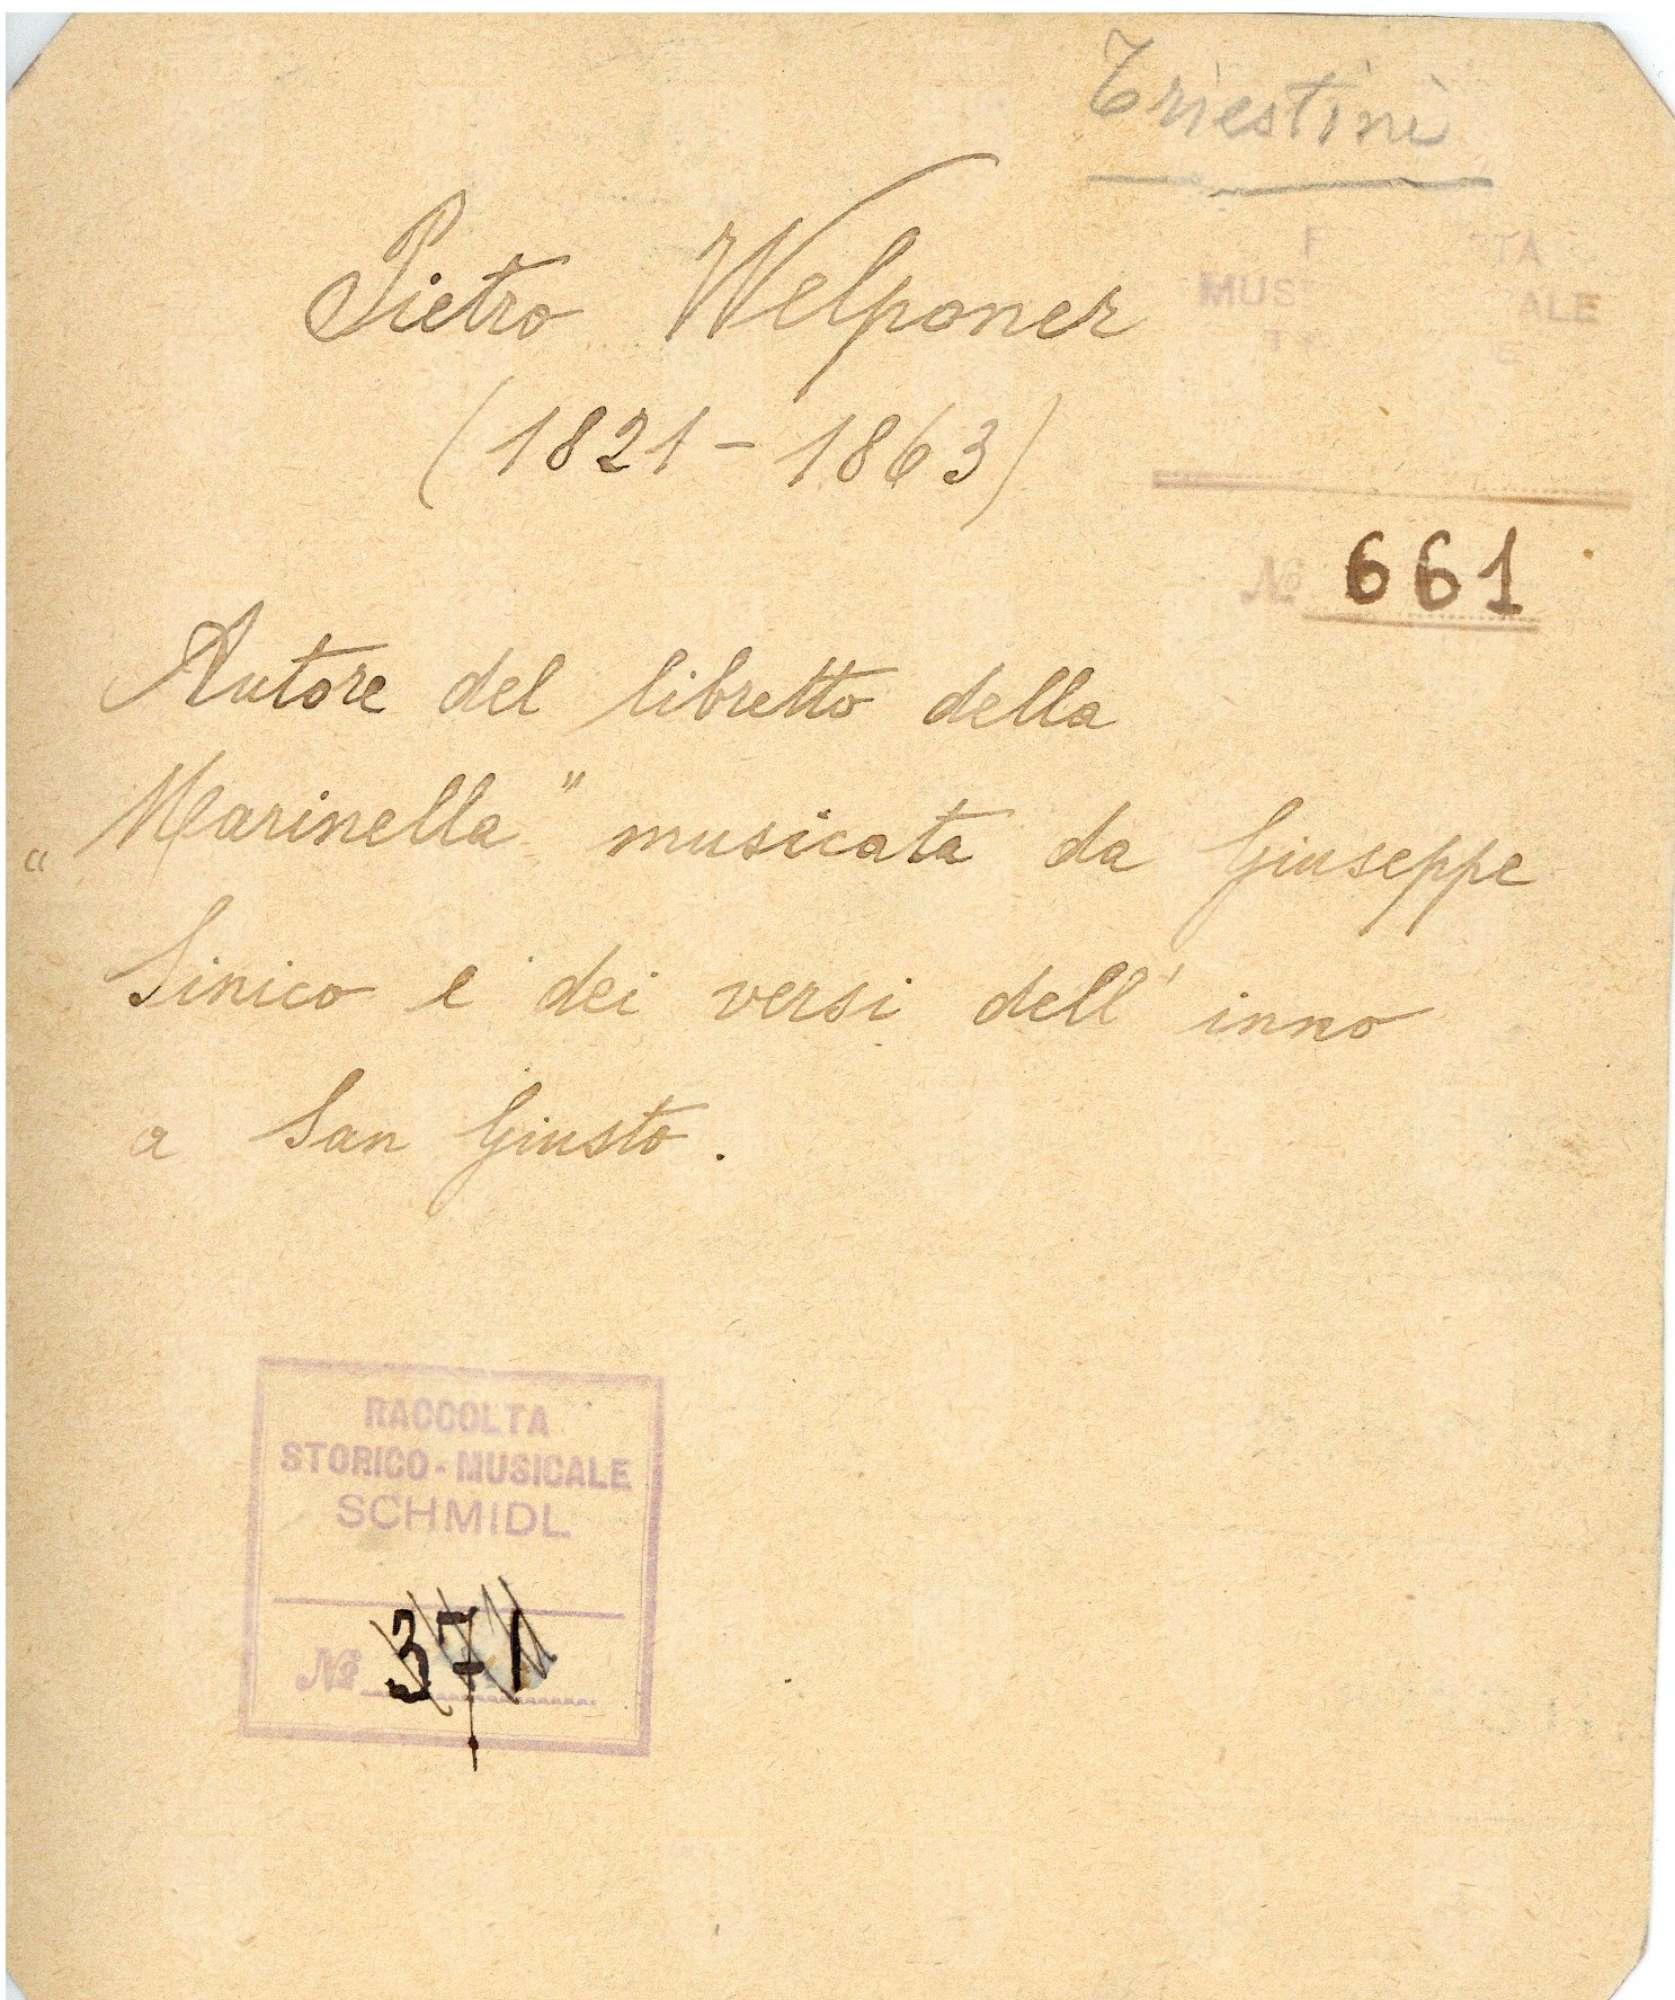 Triestini
Pietro Welponer
(1821 - 1863)
No 661
Autore del libretto della
"Marinella" musicata da Giuseppe
Sinico e dei versi dell' inno
a San Giusto.
RACCOLTA
STORICO-MUSICALE
SCHMIDL
No 371